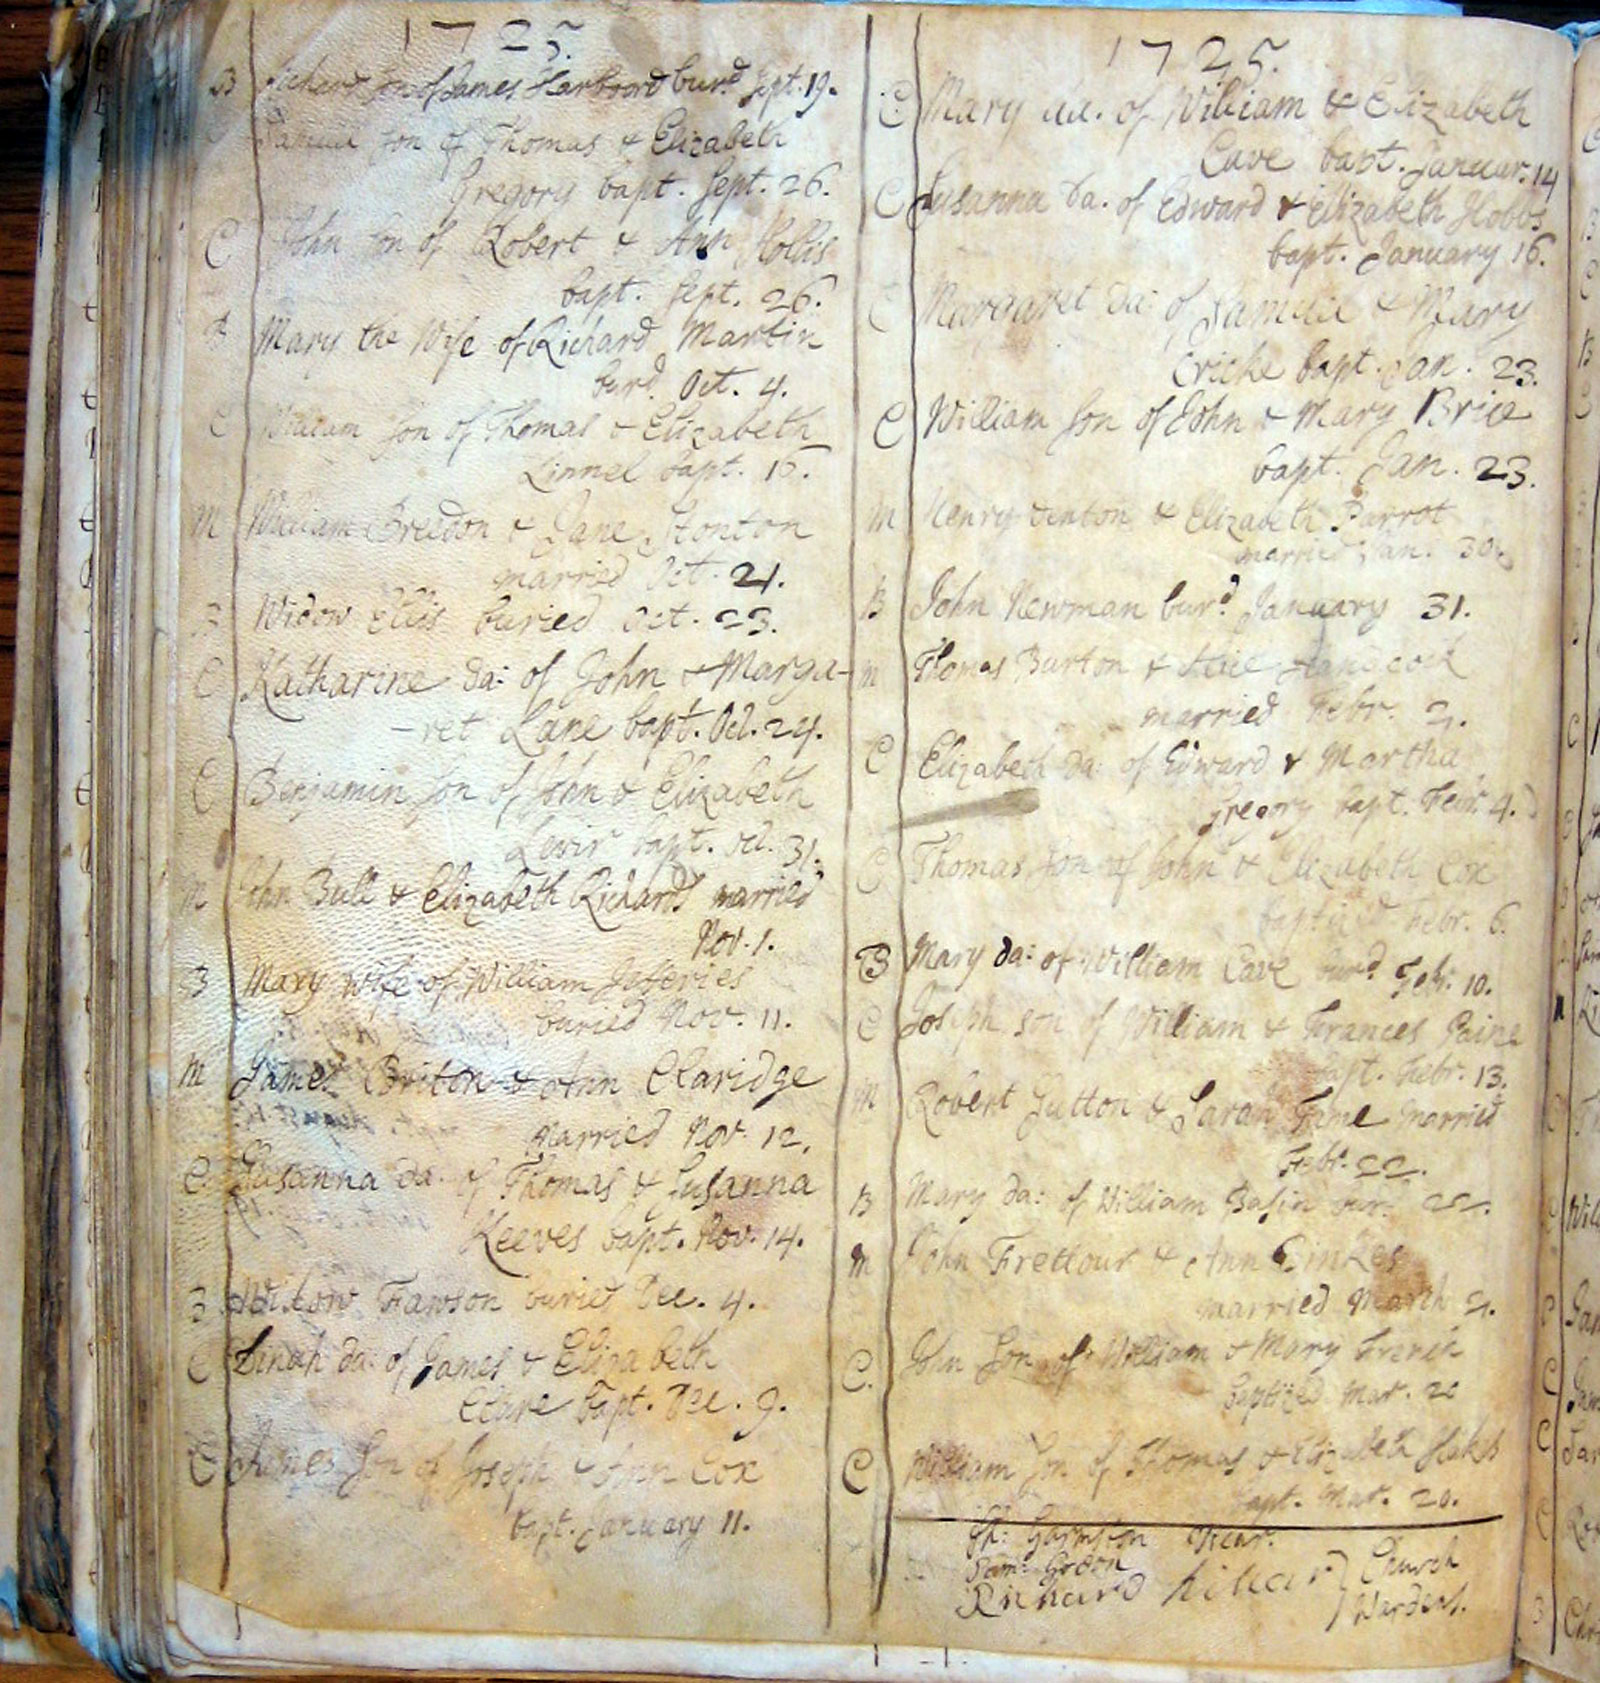 1725.
B Richard son of James Harboord burd Sept. 19.
C Samuel son of Thomas & Elizabeth
Gregory bapt. Sept. 26.
C John son of Robert & Ann Hollis
bapt. Sept. 26.
B Mary the Wife of Richard Martin
burd. Oct. 4.
C William son of Thomas & Elizabeth
Linnel bapt. 16.
M William Breedon & Jane Stonton
married Oct. 21.
B Widow Ellis buried Oct. 23.
C Katharine da: of John & Marga-
-ret Lane bapt. Oct. 24.
C Benjamin son of John & Elizabeth
Lewis bapt. Oct. 31.
M John Bull & Elizabeth Richards married
Nov. 1.
B Mary wife of William Jefferies
buried Nov. 11.
M James Briton & Ann Claridge
married Nov. 12.
C Susanna da. of Thomas & Susanna
Reeves bapt. Nov. 14.
B Widow Fawson buried Dec. 4.
C Dinah da: of James & Elizabeth
Clare bapt. Dec. 9.
C James son of Joseph & Ann Cox
bapt. January 11.
1725.
C Mary da. of William & Elizabeth
Cave bapt. Januar. 14
C Susanna da. of Edward & Elizabeth Hobbs
bapt. January 16.
C Margaret da: of Samuel & Mary
Cricke bapt. Jan. 23.
C William son of John & Mary Brice
bapt. Jan. 23.
M Henry & Elizabeth Parrot
married Jan. 30.
B John Newman burd. January 31.
M Thomas Burton & Alice Handcock
married Febr. 2.
C Elizabeth da: of Edward & Martha
Gregory bapt. Febr. 4.
C Thomas son of John & Elizabeth Cox
baptized Febr. 6.
B Mary da: of William Cave burd. Febr. 10.
C Joseph son of William & Frances Paine
bapt. Febr. 13.
M Robert Sutton & Sarah Fame married
Febr. 22.
B Mary da: of William Basin bur: 22.
M John & Ann
married March 2.
C. John Son of William & Mary French
baptized Mar. 20
C William son of Thomas & Elizabeth
bapt. Mar. 20.
Vicar.
Sam: Green
Richard
Church
Wardens.